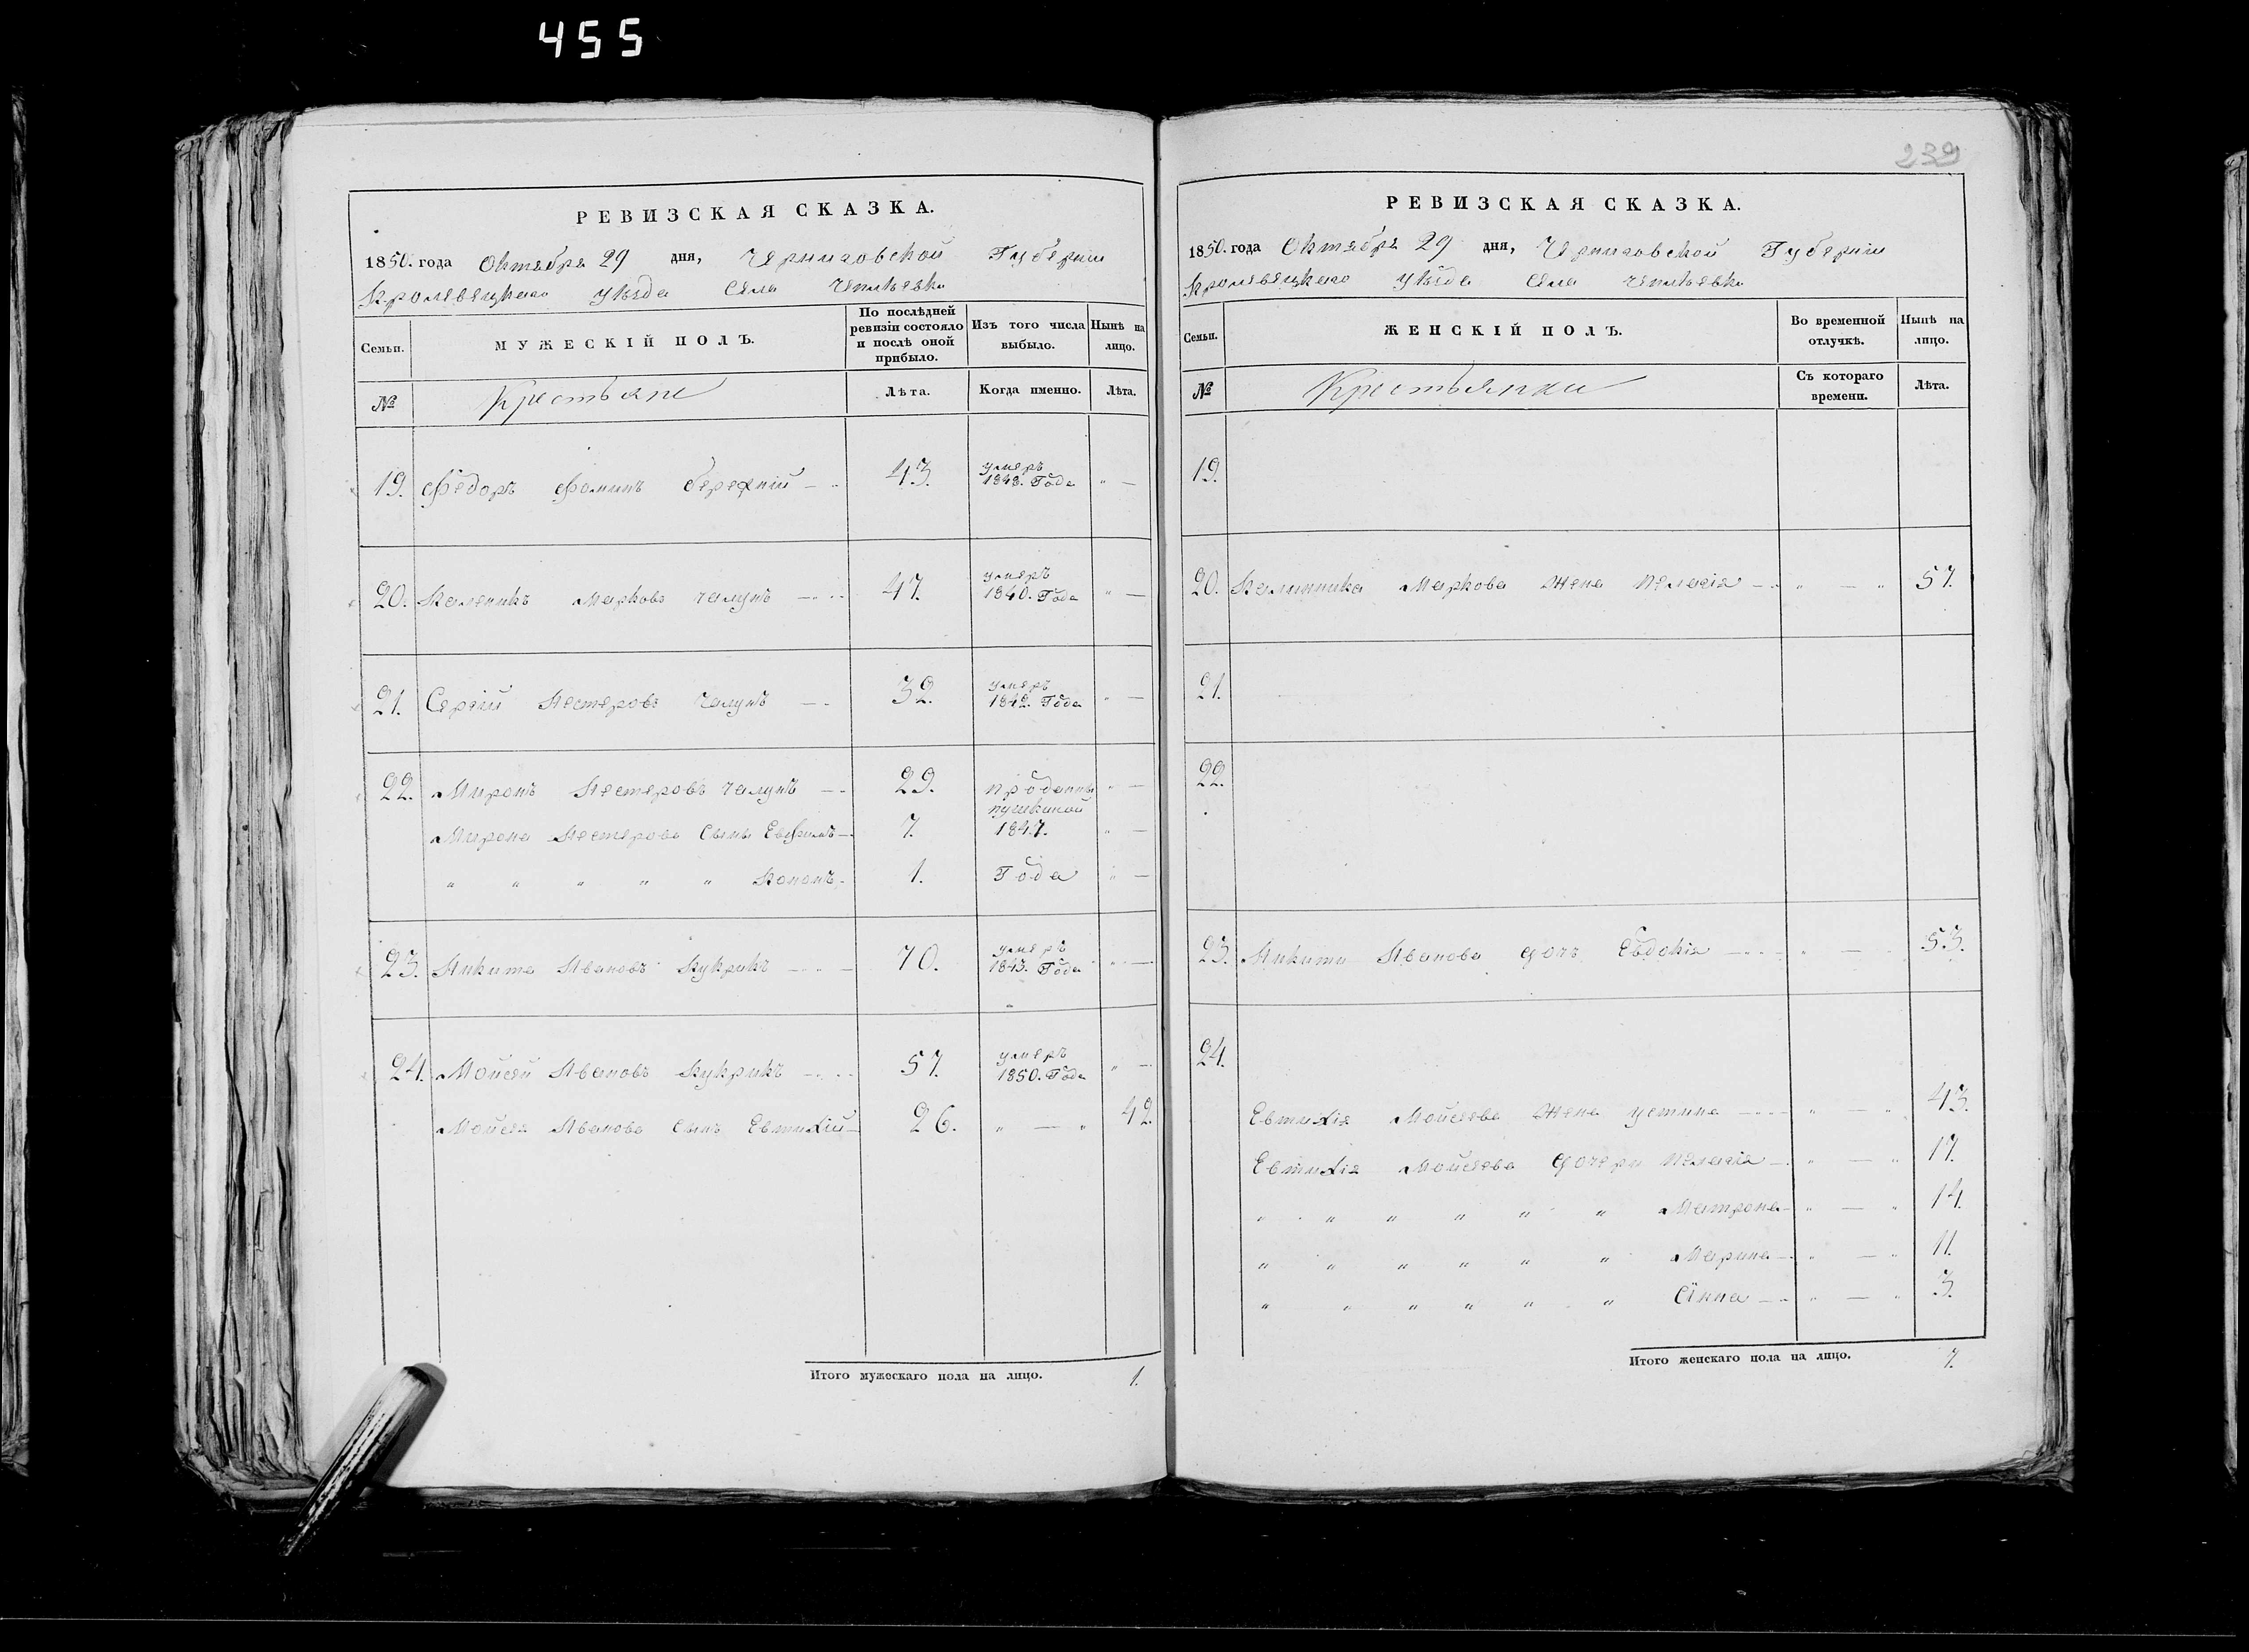 455
239
РЕВИЗСКАЯ СКАЗКА.
1850. года Октября 29 дня, Черниговской Губернии
Кролевецкаго уѣзда села
Семьи.
МУЖЕСКІЙ ПОЛЪ.
По послѣдней ревизіи состояло и послѣ оной прибыло.
Изъ того числа выбыло.
Нынѣ на лицо.
№ Крестьяне Лѣта. Когда именно. Лѣта.
19. Федоръ Фоминъ 43. умеръ 1848. Года " —
20. Калѣникъ Марковъ Чалунъ — 47. умеръ 1840. Года " —
21. Сергій Нестеровъ Чалунъ — 32. умеръ 1842. Года " —
22. Миронъ Нестеровъ Чалунъ — 29. проданны " —
Мирона Нестерова сынъ Евфимъ — 7. пушкиной 1847. " —
" " " " " Кононъ. 1. Года " —
23. Никита Ивановъ Кукрикъ — 70. умеръ 1843. Года " —
24. Мойсей Ивановъ Кукрикъ — 57. умеръ 1850. Года " —
Мойсея Иванова сынъ Евтихій — 26. " — " 42.
Итого мужескаго пола на лицо. 1.
РЕВИЗСКАЯ СКАЗКА.
1850. года Октября 29 дня, Черниговской Губерніи
Кролевецкаго уѣзда села
Семьи.
ЖЕНСКІЙ ПОЛЪ.
Во временной отлучкѣ.
Нынѣ на лицо.
№ Крестьянки Съ котораго времени. Лѣта.
19.
20. Калинника Маркова жена Пелагія — " — " 57.
21.
22.
23. Никиты Иванова дочь Евдокія — " — 53.
24.
Евтихія Мойсеева жена Устина — " — " 43.
Евтихія Мойсеева дочери Пелагія — " — " 17.
" " " " " " Матрона — " — " 14.
" " " " " " Марина — " — " 11.
" " " " " " Анна — " — " 3.
Итого женскаго пола на лицо. 7.